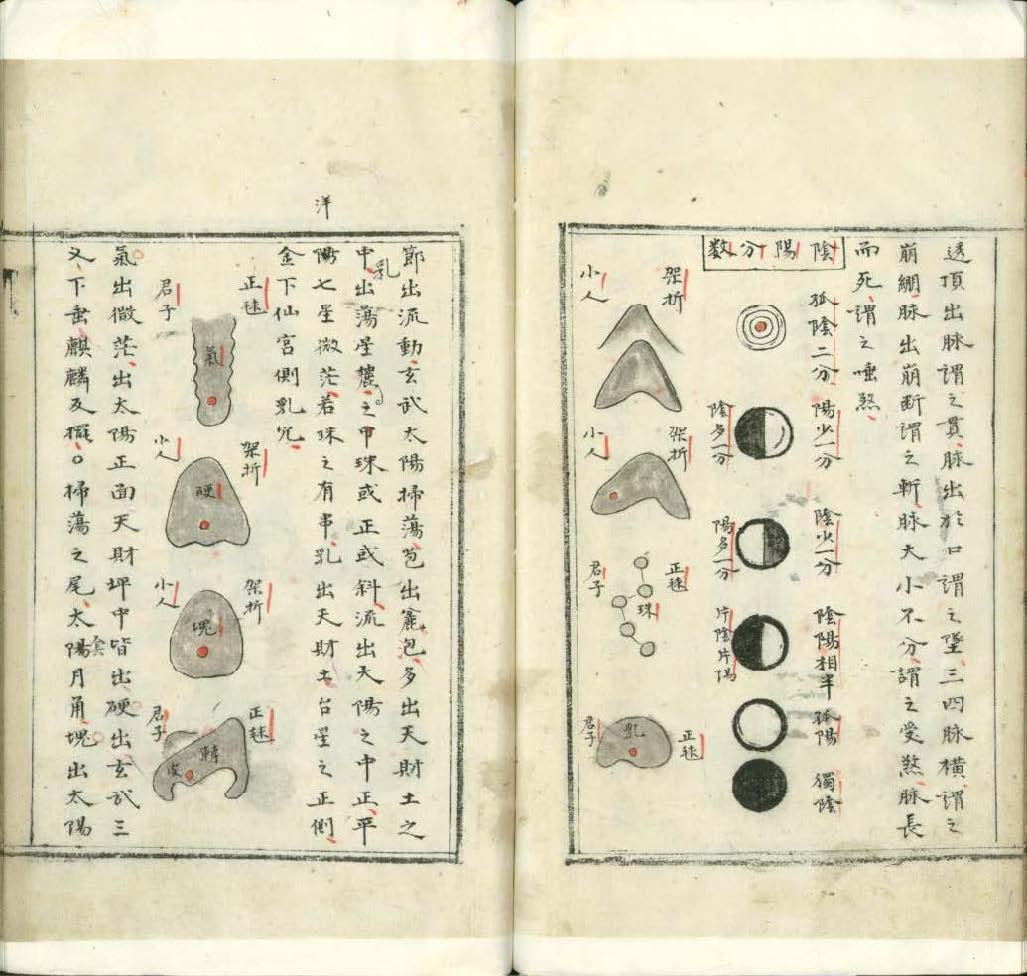 透頂出脉謂之貫脉出於口謂之墜三四脉橫謂之
崩綳脉出崩斷謂之斬脉大小不分謂之受煞脉長
而死謂之唾煞
陰陽分数
孤陰二分
陽少一分
陰少一分
陰陽相半
孤陽
獨陰
陰多一分
陽多一分
片陰片陽
架折
小人
架折
小人
正毬
珠
君子
正毬
乳
君子
洋
節出流動玄武太陽掃蕩苞出龕包多出天財土之
乳
中出蕩星之甲珠或正或斜流出天陽之中正平
陽七星微茫若珠之有串乳出天財土台星之正側
金下仙宮側乳穴
正毬
氣
君子
架折
硬
小人
架折
塊
小人
正毬
轉
皮
君子
氣出微茫出太陽正面天財坪中皆出硬出玄武三
叉下垂麒麟及擺○掃蕩之尾太陽月角塊出太陽